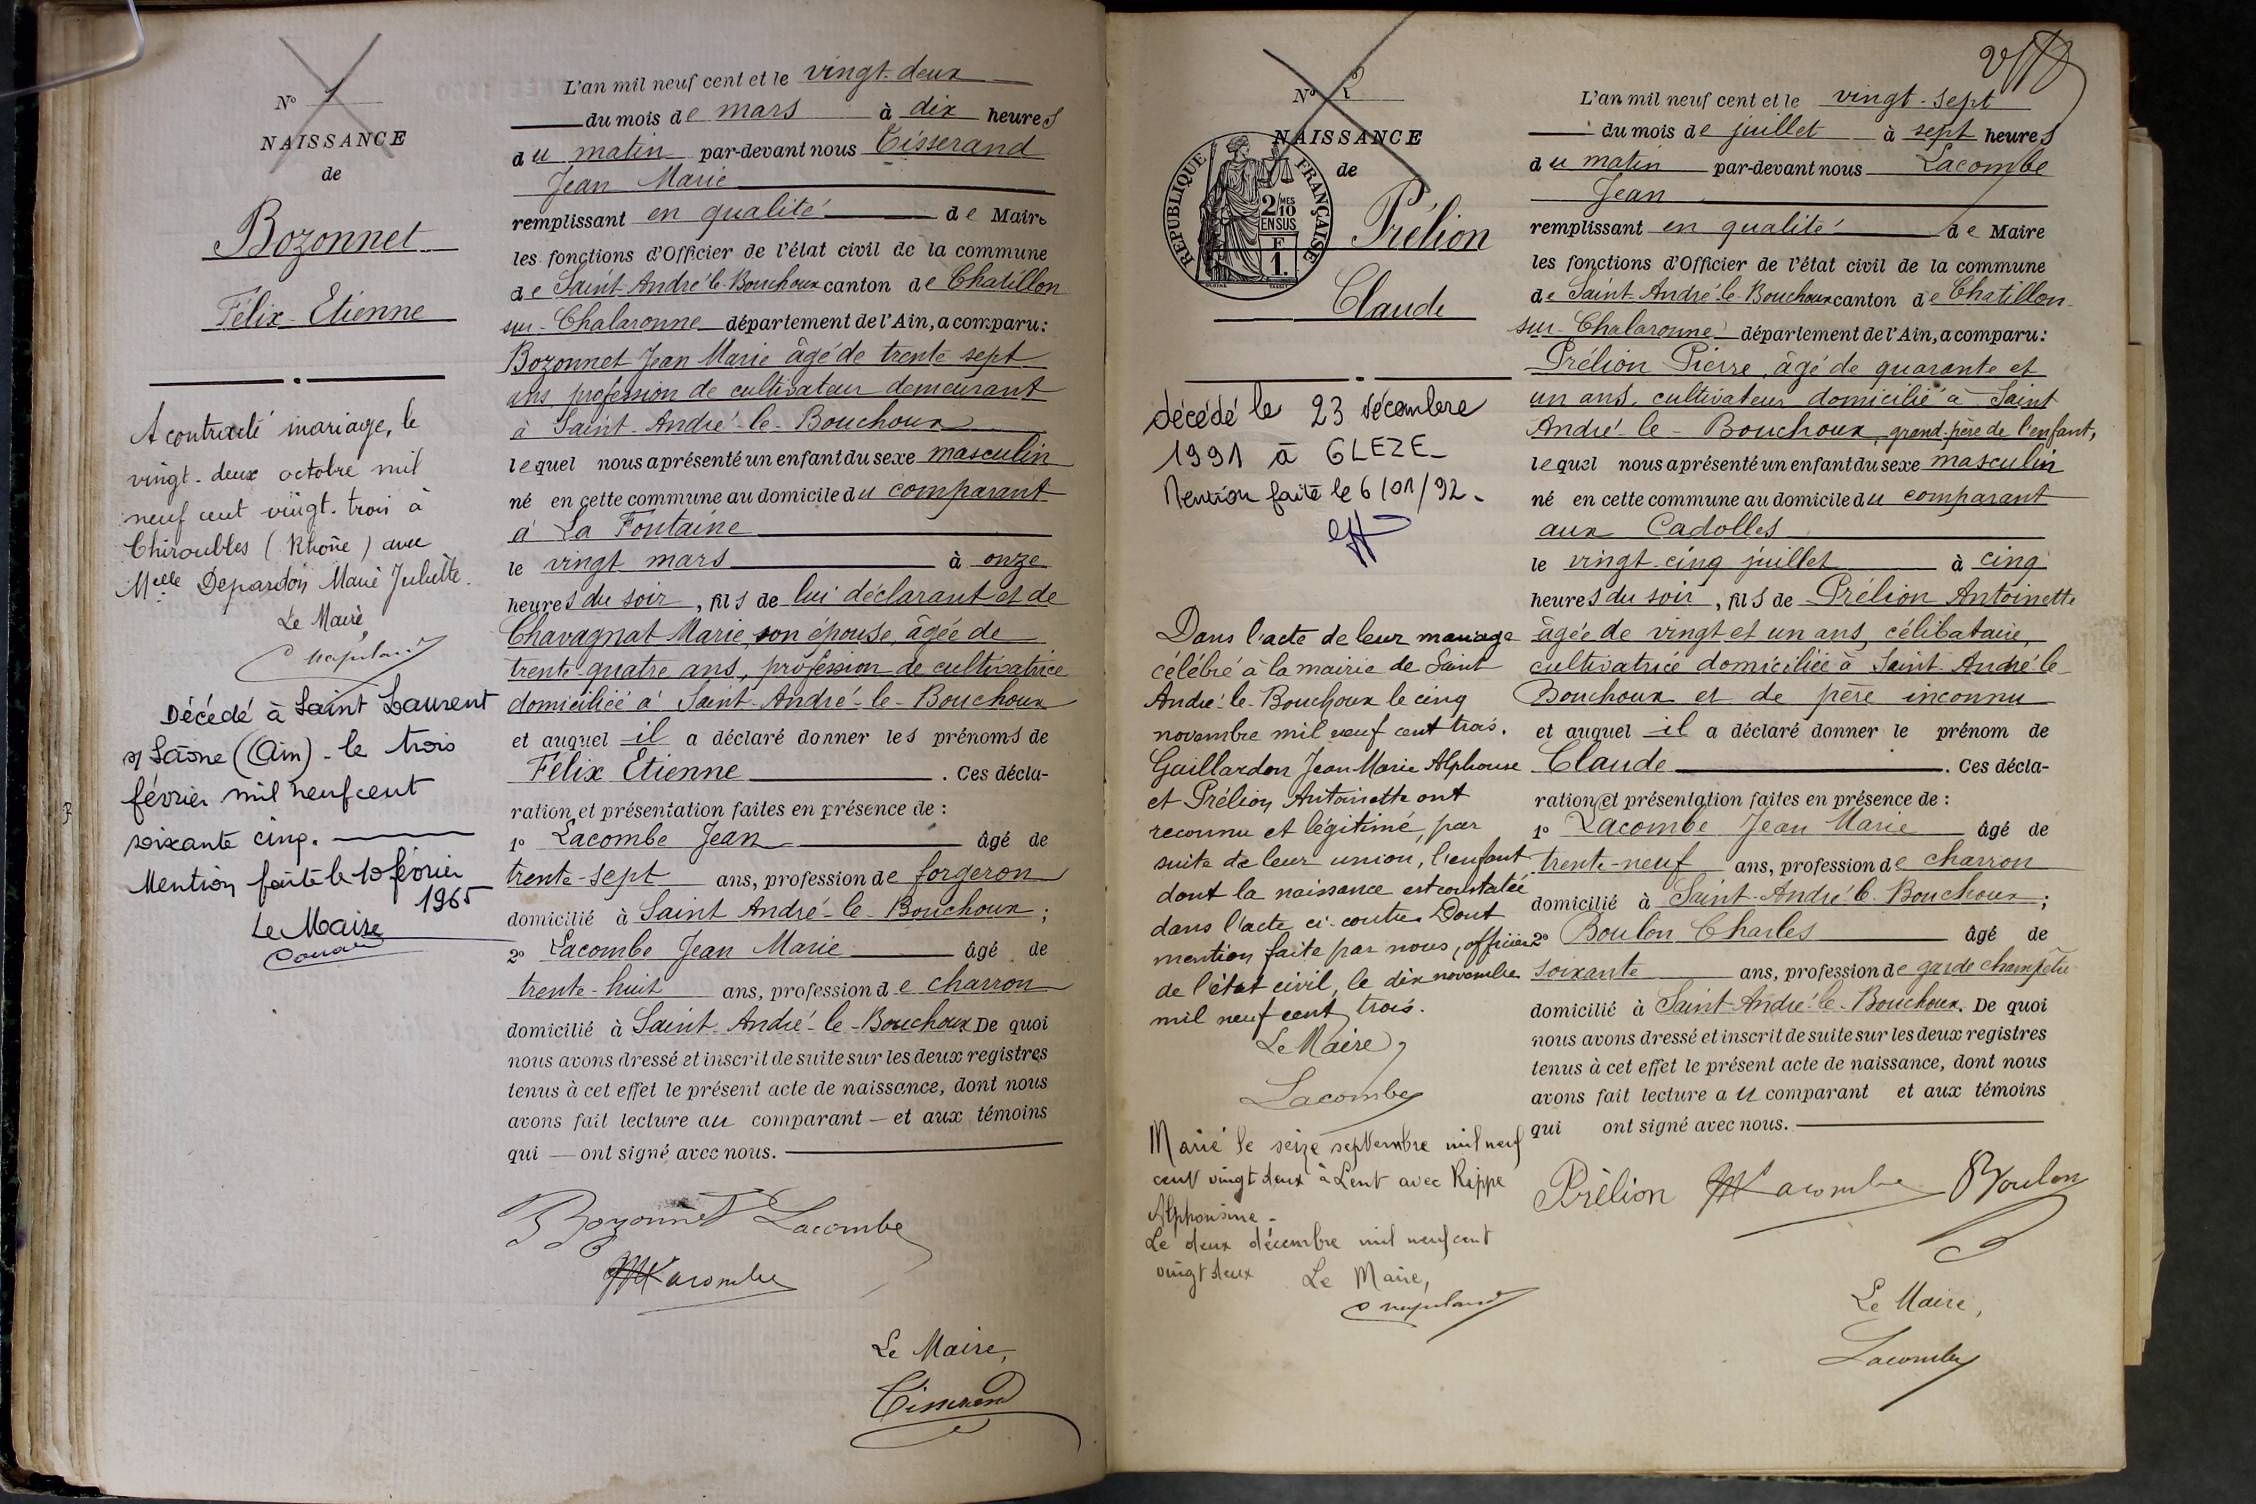 N° 1
NAISSANCE
de
Bozonnet
Félix-Etienne
A contracté mariage, le
vingt-deux octobre mil
neuf cent vingt-trois à
Chiroubles (Rhône) avec
Melle Depardon Marie Juliette.
Le Maire,
Décédé à Saint Laurent
s/ Saône (Ain) - le trois
février mil neuf cent
soixante cinq.
Mention faite le 10 février
1965
Le Maire
L'an mil neuf cent et le vingt-deux
du mois de mars à dix heures
du matin par-devant nous Tisserand
Jean Marie
remplissant en qualité de Maire
les fonctions d'Officier de l'état civil de la commune
de Saint-André-le-Bouchoux canton de Chatillon
sur-Chalaronne département de l'Ain, a comparu:
Bozonnet Jean Marie âgé de trente sept
ans profession de cultivateur demeurant
à Saint-André-le-Bouchoux
lequel nous a présenté un enfant du sexe masculin
né en cette commune au domicile du comparant
à La Fontaine
le vingt mars à onze
heures du soir, fils de lui déclarant et de
Chavagnat Marie, son épouse, âgée de
trente-quatre ans, profession de cultivatrice
domiciliée à Saint-André-le-Bouchoux
et auquel il a déclaré donner les prénoms de
Félix Etienne. Ces décla-
ration et présentation faites en présence de :
1° Lacombe Jean âgé de
trente-sept ans, profession de forgeron
domicilié à Saint André-le-Bouchoux ;
2° Lacombe Jean Marie âgé de
trente-huit ans, profession de charron
domicilié à Saint-André-le-Bouchoux De quoi
nous avons dressé et inscrit de suite sur les deux registres
tenus à cet effet le présent acte de naissance, dont nous
avons fait lecture au comparant — et aux témoins
qui — ont signé avec nous.
Bozonnet Lacombe
JMLacombe
Le Maire,
Tisserand
N° 2
NAISSANCE
de
RÉPUBLIQUE FRANÇAISE
2/10 MES
EN SUS
F
1.
Prélion
Claude
décédé le 23 décembre
1991 à GLEZE
Mention faite le 6/01/92.
Dans l'acte de leur mariage
célébré à la mairie de Saint
André-le-Bouchoux le cinq
novembre mil neuf cent trois.
Guillardon Jean Marie Alphonse
et Prélion Antoinette ont
reconnu et légitimé, par
suite de leur union, l'enfant
dont la naissance est constatée
dans l'acte ci-contre. Dont
mention faite par nous, officier
de l'état civil, le dix novembre
mil neuf cent trois.
Le Maire,
Lacombe
Marié le seize septembre mil neuf
cent vingt deux à Lent avec Rippe
Alphonsine -
Le deux décembre mil neuf cent
vingt deux Le Maire,
L'an mil neuf cent et le vingt-sept
du mois de juillet à sept heures
du matin par-devant nous Lacombe
Jean
remplissant en qualité de Maire
les fonctions d'Officier de l'état civil de la commune
de Saint-André-le-Bouchoux canton de Chatillon-
sur-Chalaronne département de l'Ain, a comparu:
Prélion Pierre, âgé de quarante et
un ans, cultivateur domicilié à Saint
André-le-Bouchoux, grand-père de l'enfant,
lequel nous a présenté un enfant du sexe masculin
né en cette commune au domicile du comparant
aux Cadolles
le vingt-cinq juillet à cinq
heures du soir, fils de Prélion Antoinette
âgée de vingt et un ans, célibataire,
cultivatrice domiciliée à Saint-André-le-
Bouchoux et de père inconnu
et auquel il a déclaré donner le prénom de
Claude. Ces décla-
ration et présentation faites en présence de :
1° Lacombe Jean Marie âgé de
trente-neuf ans, profession de charron
domicilié à Saint-André-le-Bouchoux ;
2° Boulon Charles âgé de
soixante ans, profession de garde champêtre
domicilié à Saint-André-le-Bouchoux. De quoi
nous avons dressé et inscrit de suite sur les deux registres
tenus à cet effet le présent acte de naissance, dont nous
avons fait lecture au comparant et aux témoins
qui ont signé avec nous.
Prélion JMLacombe Boulon
Le Maire,
Lacombe